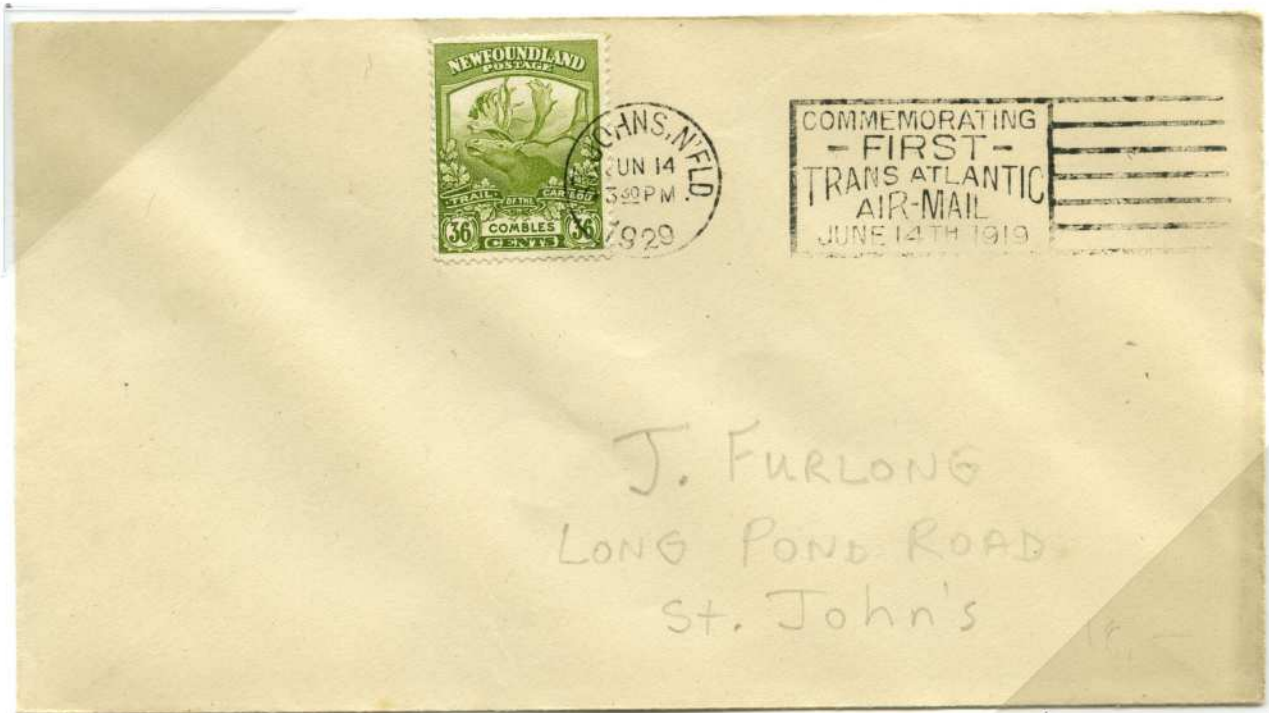 NEWFOUNDLAND
POSTAGE
TRAIL OF THE CARIBOU
36 COMBLES 36
CENTS
JOHNS, N'FLD.
JUN 14
3 30 PM
1929
COMMEMORATING
- FIRST -
TRANS ATLANTIC
AIR-MAIL
JUNE 14TH 1919
J. FURLONG
LONG POND ROAD
St. John's